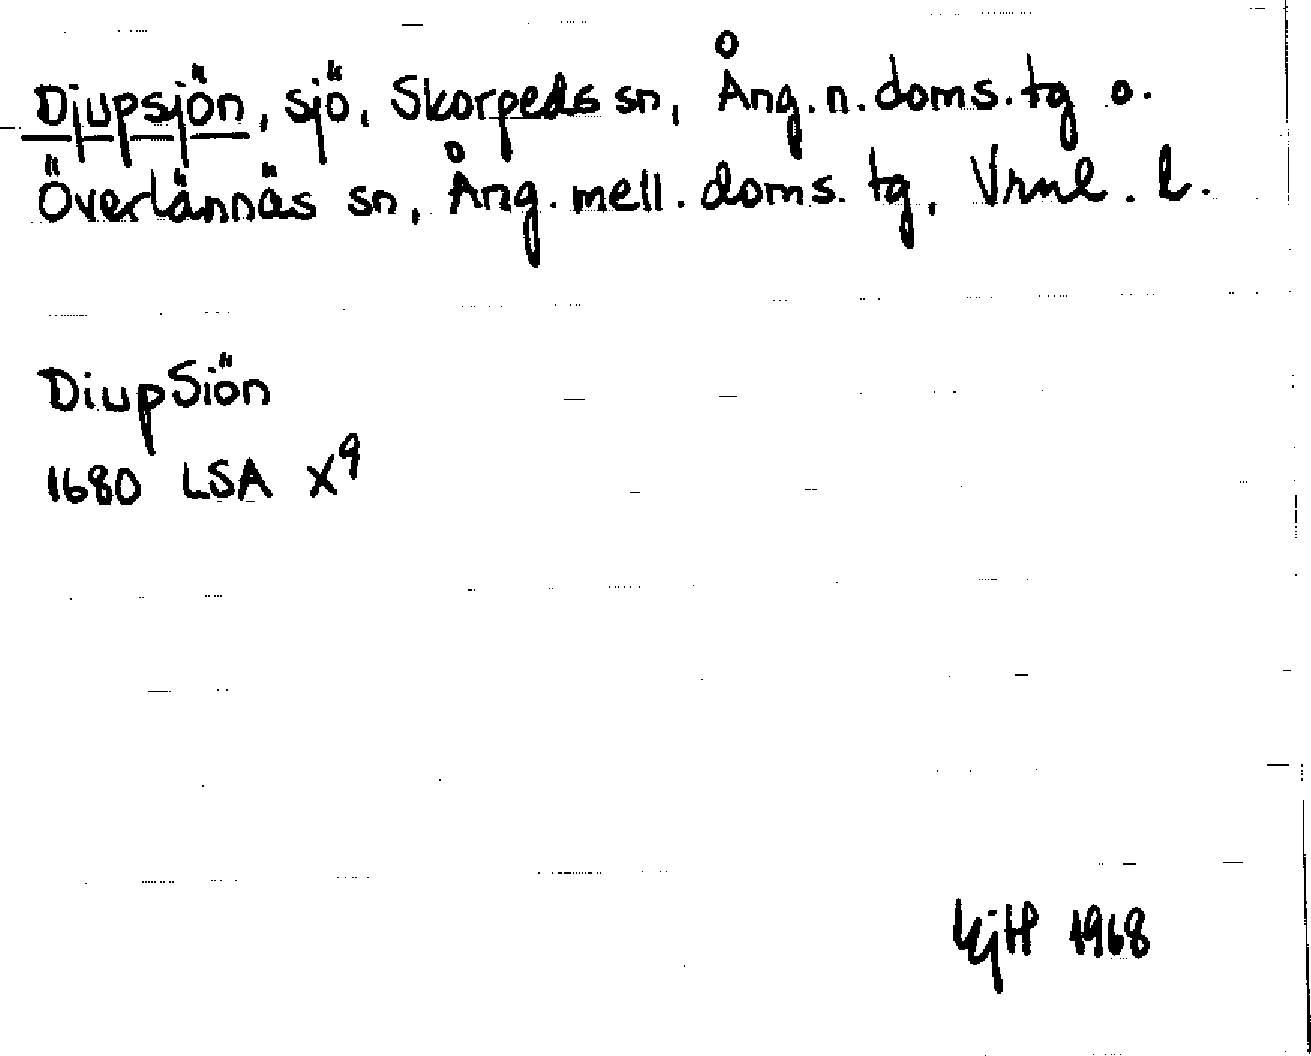 Djupsjön, sjö, Skorpeds sn, Ång. n. doms. tg o.
Överlännäs sn, Ång. mell. doms. tg, Vrnl. l.
DiupSiön
1680 LSA X9
1968